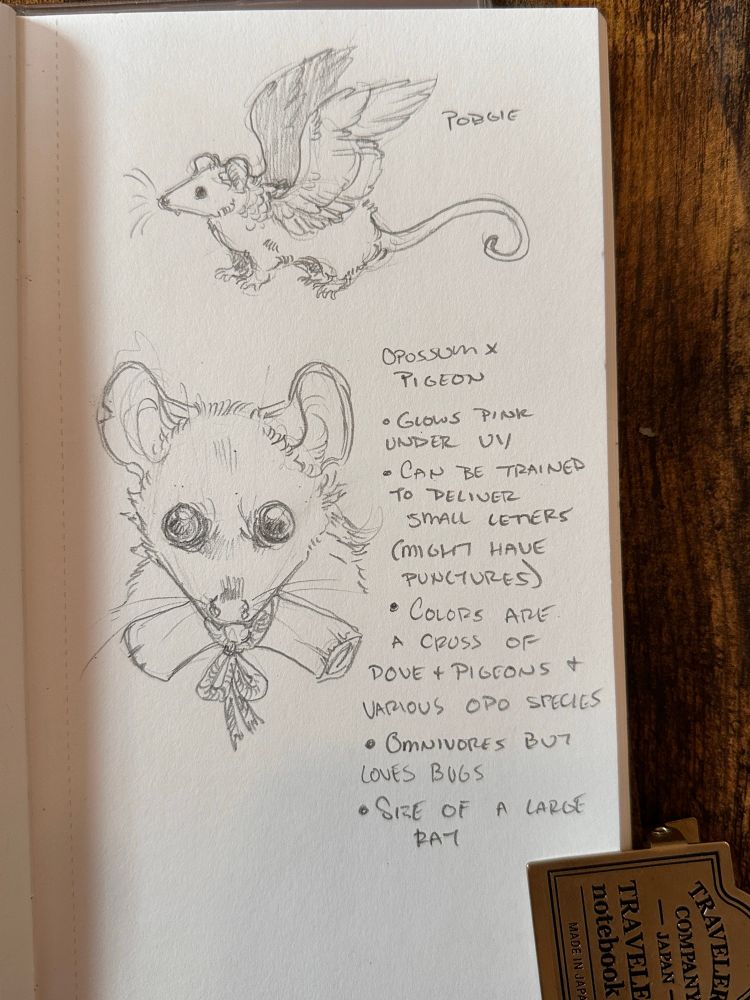 PODGIE
OPOSSUM X
PIGEON
• GLOWS PINK
UNDER UV
• CAN BE TRAINED
TO DELIVER
SMALL LETTERS
(MIGHT HAVE
PUNCTURES)
• COLORS ARE
A CROSS OF
DOVE + PIGEONS +
VARIOUS OPO SPECIES
• OMNIVORES BUT
LOVES BUGS
• SIZE OF A LARGE
RAT
TRAVELER
COMPANY
— JAPAN —
TRAVELE
notebook
MADE IN JAPA